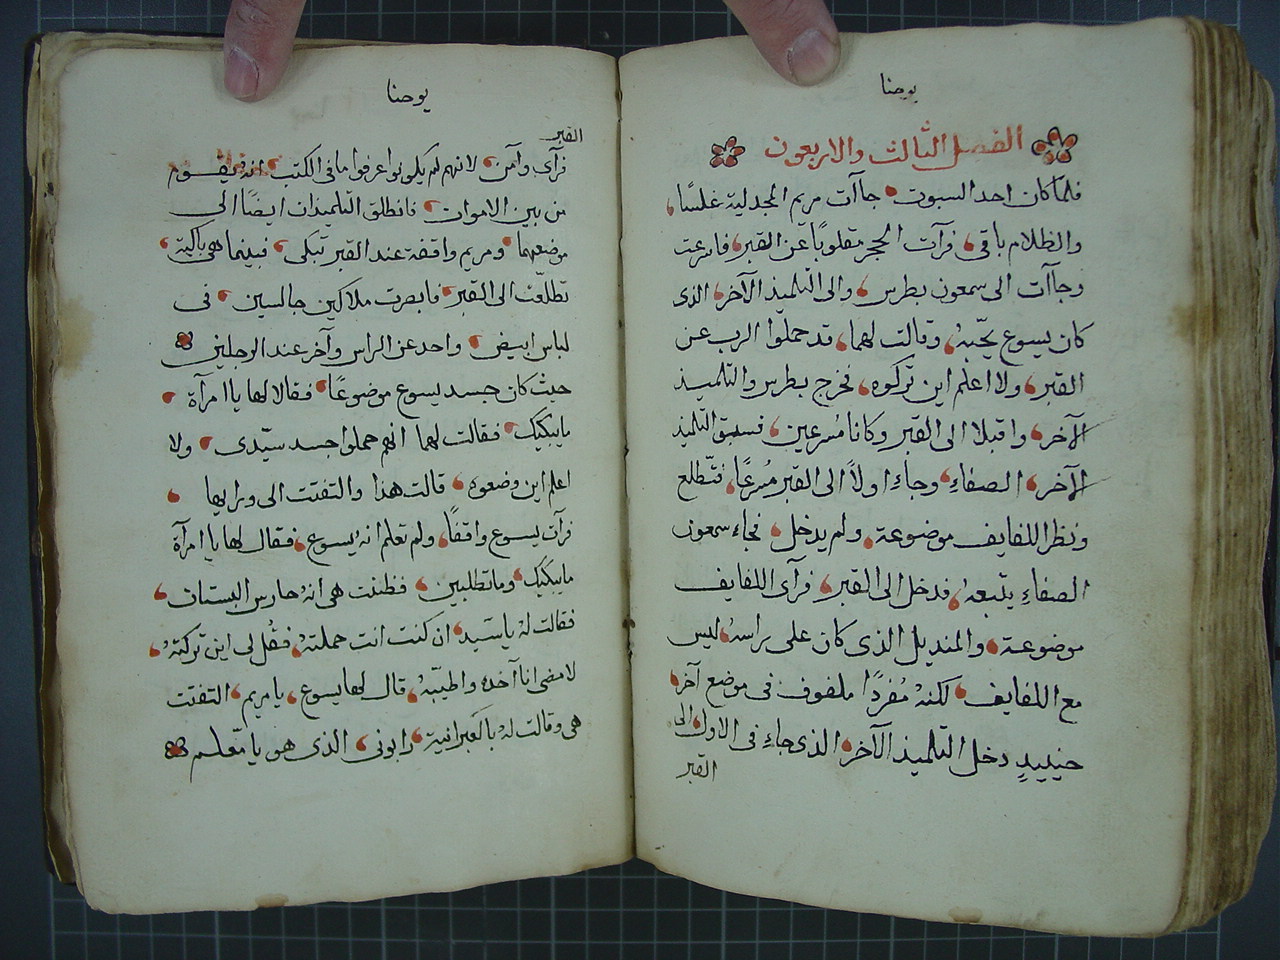 يوحنا
الفصل الثالث والاربعون
فلما كان احد السبوت جاآت مريم المجدلية غلسًا
والظلام باقى فرآت الحجر مقلوبًا عن القبر فاسرعت
وجاآت الى سمعون بطرس والى التلميذ الآخر الذى
كان يسوع يحّبهُ وقالت لهما قد حملوا الرب عن
القبر ولا اعلم اين تركوه فخرج بطرس والتلميذ
الآخر واقبلا الى القبر وكانا مُسرعين فسبق التلميذ
الآخر الصفاءِ وجاءِ اولاً الى القبر مُسرعًا فتطلع
ونظر اللفايف موضوعة ولم يدخل فجاء سمعون
الصفاءِ يتبعهُ فدخل الى القبر فرآى اللفايف
موضوعة والمنديل الذى كان على راسهُ ليس
مع اللفايف لكنهُ مُفردًا ملفوف فى موضع آخر
حينيدٍ دخل التلميذ الآخر الذى جاءِ فى الاول الى
القبر
يوحنا
القبر
فرآى وآمن لانهم لم يكونوا عرفوا ما فى الكتب انه يقوم
من بين الاموات فانطلق التلميذان ايضًا الى
موضعهما ومريم واقفة عند القبر تبكى فبينما هى باكية
تطلعت الى القبر فابصرت ملاكين جالسين فى
لباس ابيض واحد عن الراس وآخر عند الرجلين
حيث كان جسد يسوع موضوعًا فقالا لها يا امرآة
مايبكيك فقالت لهما انهم حملوا جسد سيّدى ولا
اعلم اين وضعوه قالت هذا والتفتت الى ورايها
فرآت يسوع واقفًا ولم تعلم انهُ يسوع فقال لها يا امرآة
مايبكيك وماتطلبين فظنت هى انهُ حارس البستان
فقالت لهُ ياسيد ان كنت انت حملتهُ فقُل لى اين تركتهُ
لامضى انا آخده والطيبّهُ قال لها يسوع يامريم التفتت
هى وقالت لهُ بالعبرانية رابونى الذى هو يا معّلم